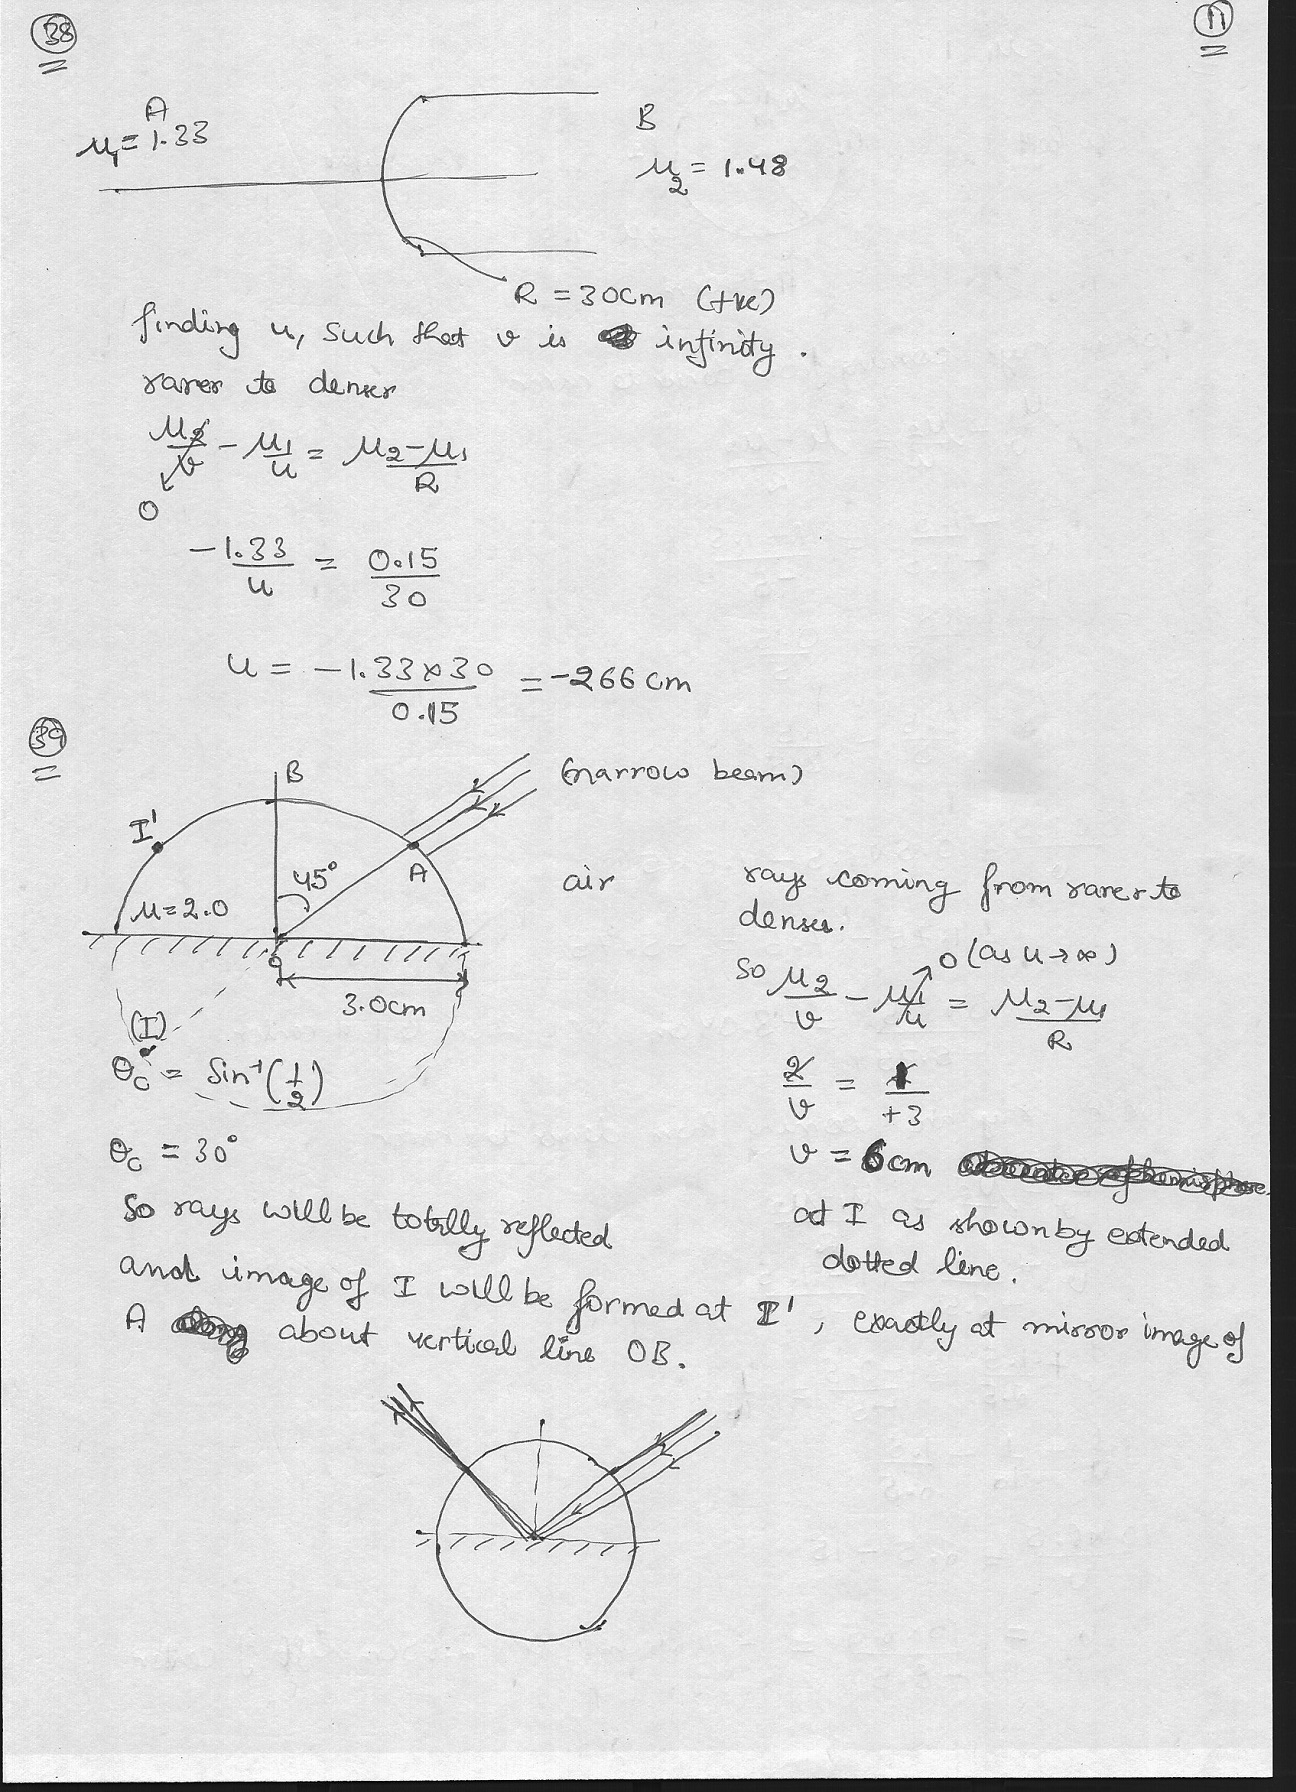 38
11
A
μ₁ = 1.33
B
μ₂ = 1.48
R = 30cm (+ve)
finding u, such that v is infinity.
rarer to denser
μ₂/v - μ₁/u = (μ₂-μ₁)/R
0
-1.33/u = 0.15/30
u = -1.33×30/0.15 = -266 cm
39
B
(narrow beam)
I'
45°
A
air
μ=2.0
O
3.0cm
(I)
rays coming from rarer to
denser.
0 (as u→∞)
so μ₂/v - μ₁/u = (μ₂-μ₁)/R
2/v = 1/+3
v = 6cm
at I as shown by extended
dotted line.
θc = Sin⁻¹(1/2)
θc = 30°
So rays will be totally reflected
and image of I will be formed at I', exactly at mirror image of
A about vertical line OB.